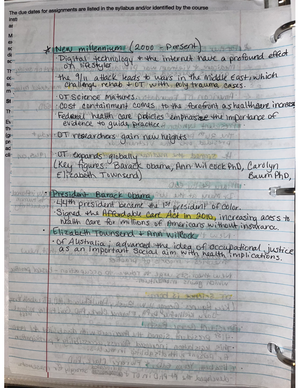 The due dates for assignments are listed in the syllabus and/or identified by the course
* New millennium (2000 - Present)
Digital technology + the internet have a profound effect
on lifestyle.
the 9/11 attack leads to wars in the Middle East, which
challenge rehab + OT with polytrauma cases.
OT Science Matures.
Cost containment comes to the forefront as healthcare
Federal health care policies emphasize the importance of
evidence to guide practice.
OT researchers gain new heights.
OT expands globally
(Key figures: Barack Obama, Ann Wilcock PhD, Carolyn
Baum PhD,
Elizabeth Townsend)
President Barack Obama
44th president became the 1st president of color.
Signed the Affordable Care Act in 2010, increasing access to
health care for millions of Americans without insurance.
Elizabeth Townsend + Ann Wilcock
• of Australia; advanced the idea of occupational justice
as an important social aim with health implications.